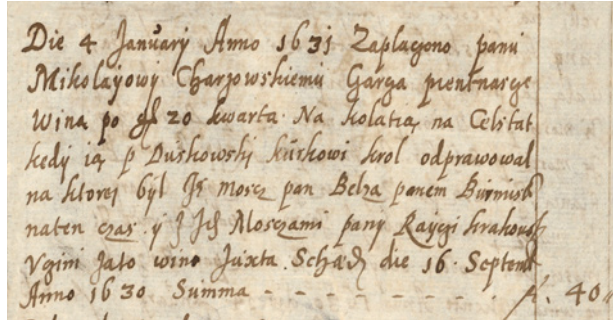 Die 4 January Anno 1631 Zaplaczono panu
Mikolayowy Charzowskiemu Garga pientnasçe
Wina po gł 20 kwarta Na kolatią na Celstat
kedy ią p Duskowskj kurkowi krol odprawowal
na ktorej był Je mosç pan Belza panem Burmist
naten czas y z Jch Mosczami pany Rayczi krakowsk
Vgini jato wino Juxta Schæd die 16 Septemb
Anno 1630 Summa - - - - - - - fl. 40